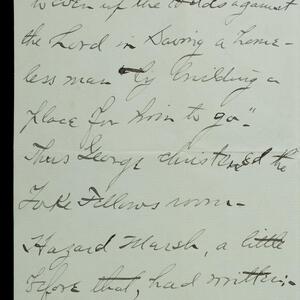 to even up the odds against
the Lord in saving a home-
less man by building a
place for him to go".
Thus George christened the
Toke Fellows room -
Hazard Marsh, a little
before that, had written:-